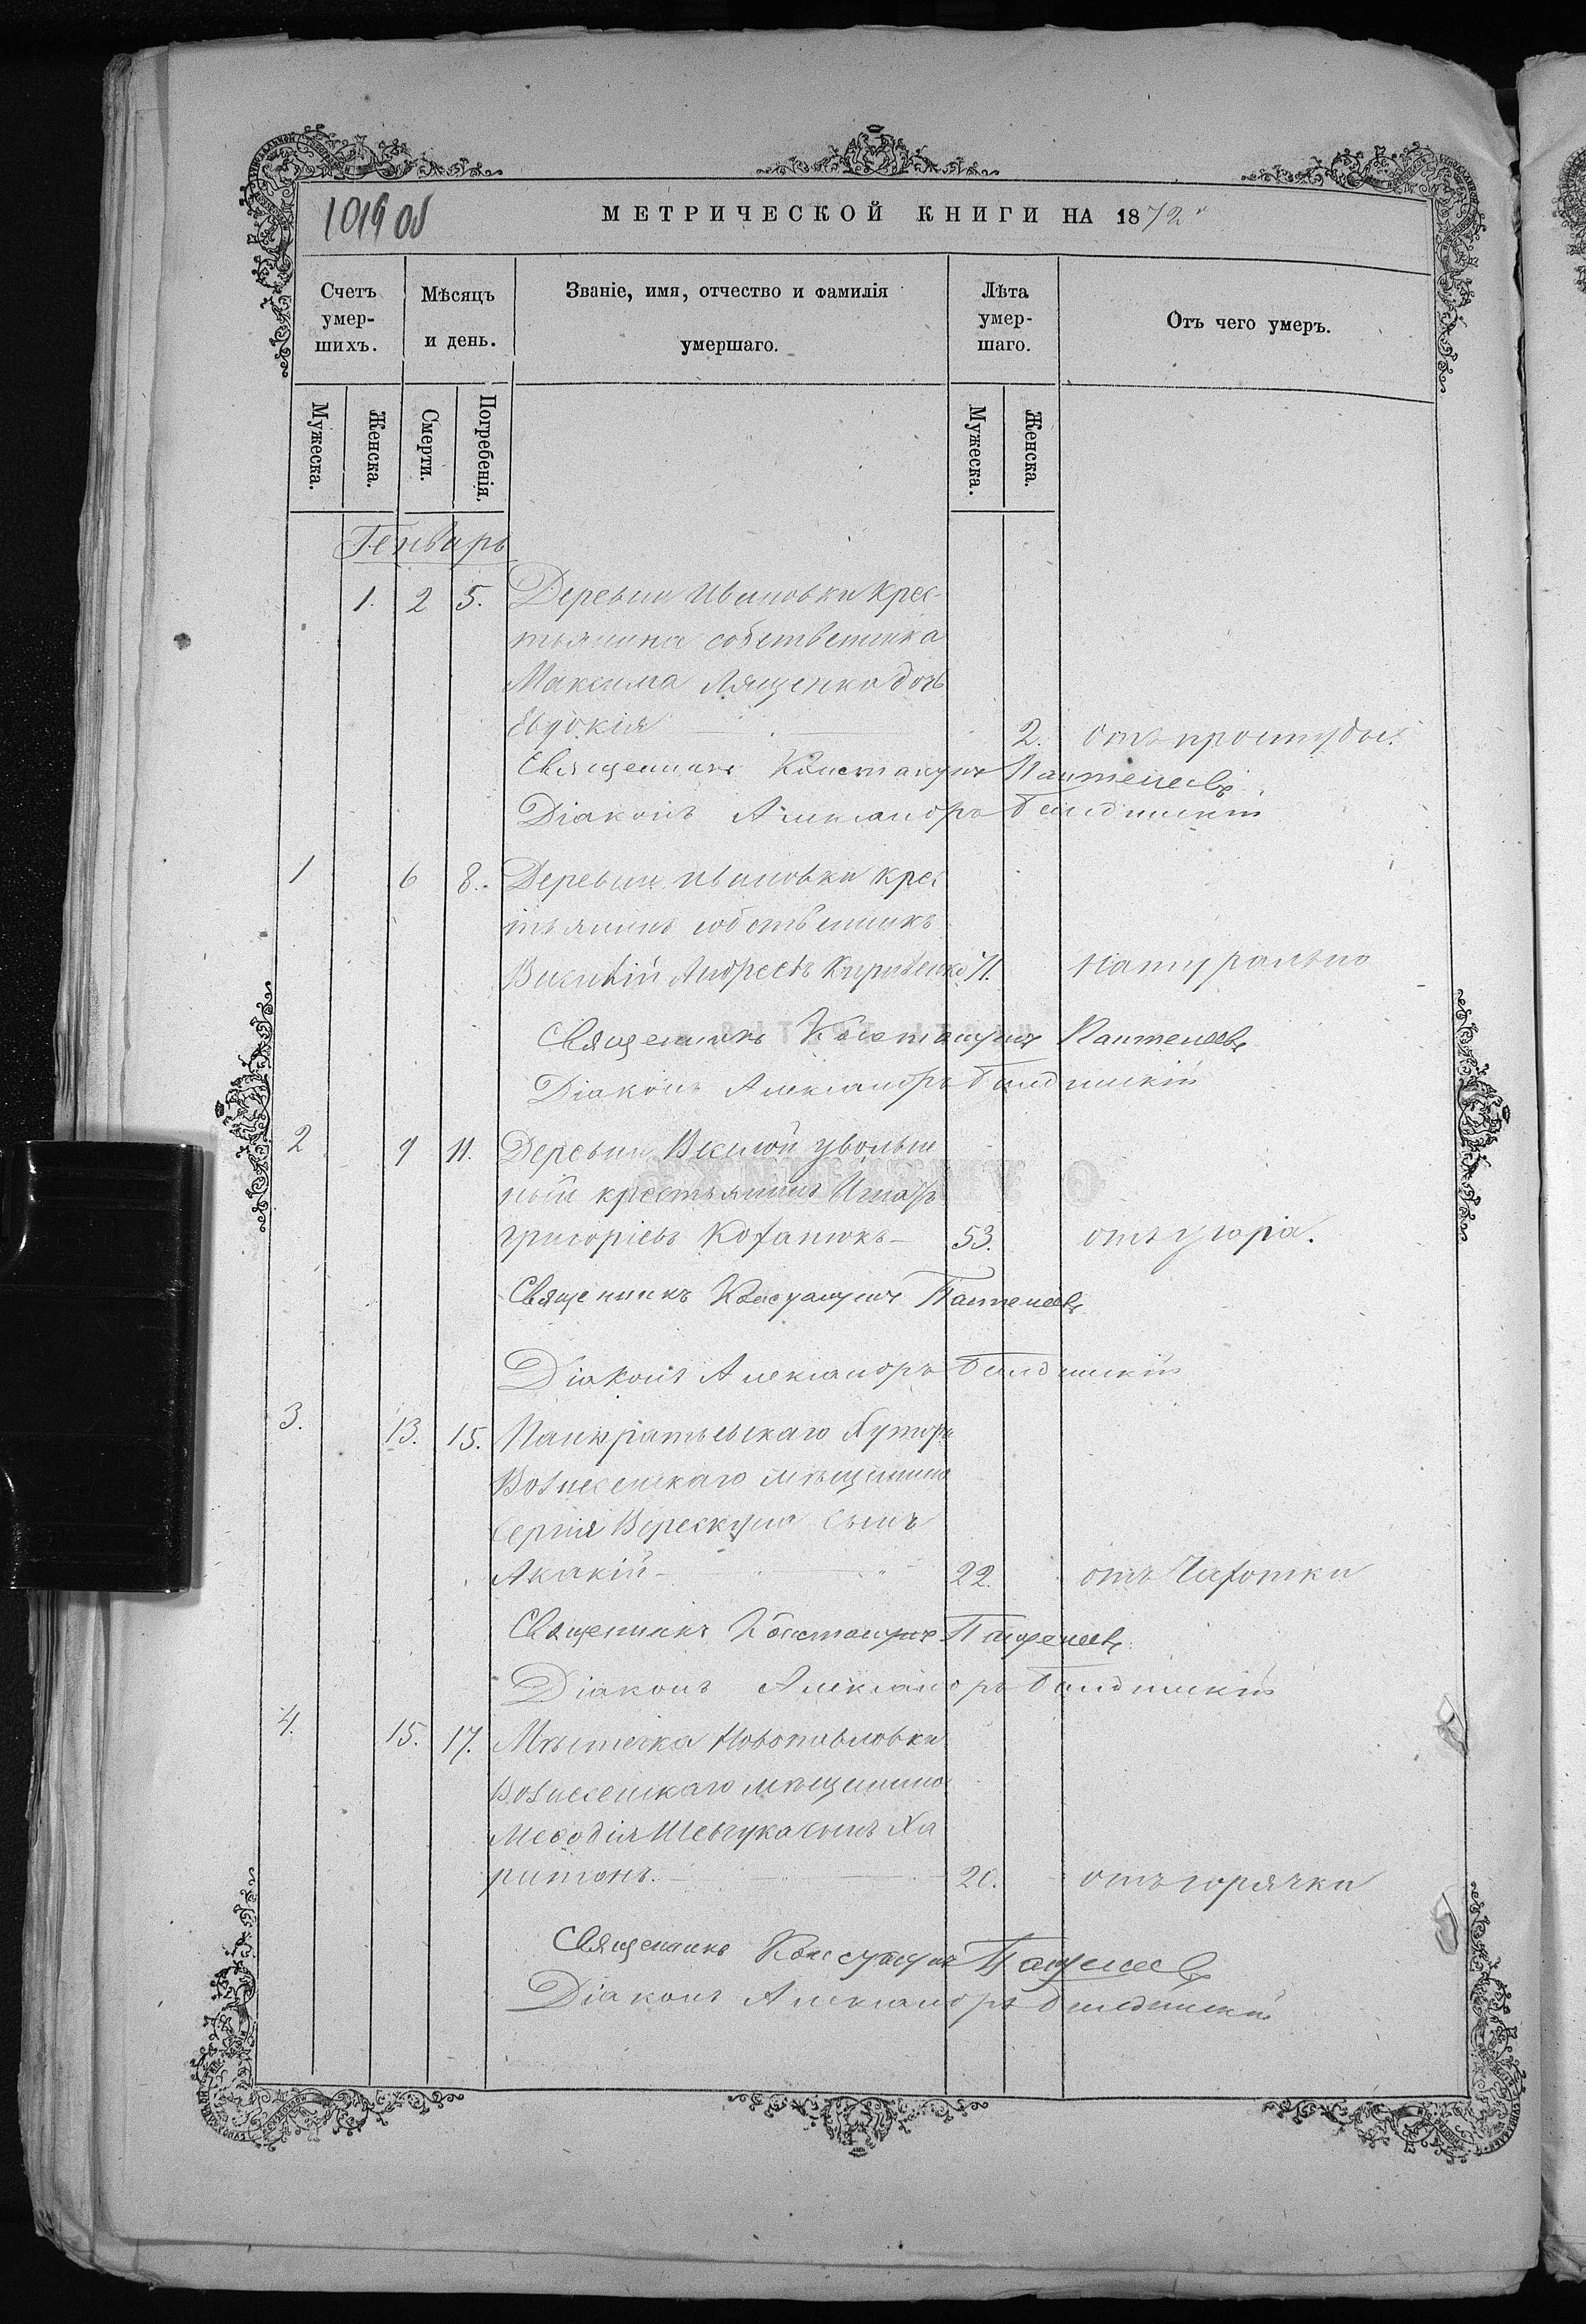 1019 об
МЕТРИЧЕСКОЙ КНИГИ НА 1872
Счетъ умер-шихъ.
Мѣсяцъ и день.
Званіе, имя, отчество и фамилія умершаго.
Лѣта умер-шаго.
Отъ чего умеръ.
Мужеска.
Женска.
Смерти.
Погребенія.
Мужеска.
Женска.
Генварь
1. 2 5. Деревни Ивановки Крес-
тьянина собственника
Максима Лященко дочь
Евдокія 2. отъ простуды.
Священникъ Константинъ Пантелеевъ
Діаконъ Александръ
1 6 8. Деревни Ивановки крес
тьянинъ собственникъ
Василій Андреевъ Кириченко 71. Натурально
Священникъ Константинъ Пантелеевъ
Діаконъ Александръ
2 9 11. Деревни Веселой уволен
ный крестьянинъ Игнатъ
Григорієвъ Козанюкъ 53. отъ удара.
Священникъ Константинъ Пантелеевъ
Діаконъ Александръ
3. 13. 15. Панкратьевскаго Хутора
Вознесенскаго мѣщанина
Сергія Верескуна сынъ
Акакій 22. отъ Чахотки
Священникъ Константинъ Пантелеевъ
Діаконъ Александръ
4. 15. 17. Мѣстечка Новопавловки
Вознесенскаго мѣщанина
Меѳодія Шевчука сынъ Ха
ритонъ. 20. отъ горячки
Священникъ Константинъ Пантелеевъ
Діаконъ Александръ